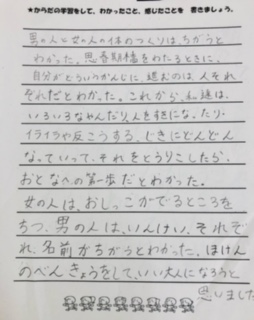 ★からだの学習をして、わかったこと、感じたことを 書きましょう。
男の人と女の人の体のつくりは、ちがうと
わかった。思春期橋をわたるときに、
自分がどういうかんじに、進むのは、人それ
ぞれだとわかった。これから、私達は、
いろいろなんだり人を好きになったり、
イライラや反こうする、じきにどんどん
なっていって、それをとうりこしたら、
おとなへの第一歩だとわかった。
女の人は、おしっこがでるところを
ちつ、男の人は、いんけい。それぞ
れ、名前がちがうとわかった。ほけん
のべんきょうをして、いい大人になろうと
思いました